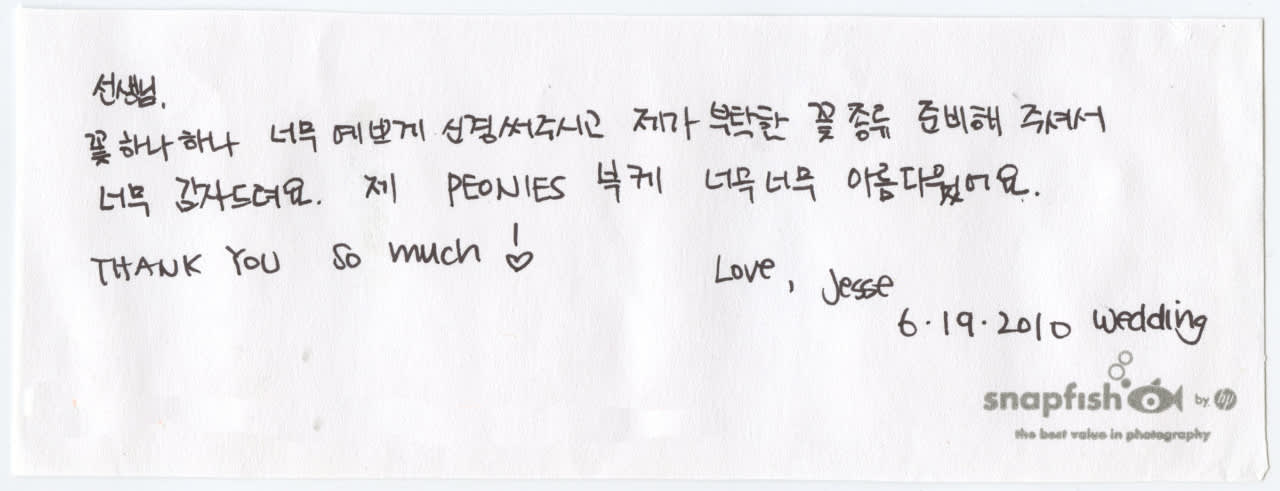 선생님,
꽃 하나하나 너무 예쁘게 신경써주시고 제가 부탁한 꽃 종류 준비해 주셔서
너무 감사드려요. 제 PEONIES 부케 너무너무 아름다웠어요.
THANK YOU so much!
Love, Jesse
6.19.2010 wedding
snapfish by hp
the best value in photography